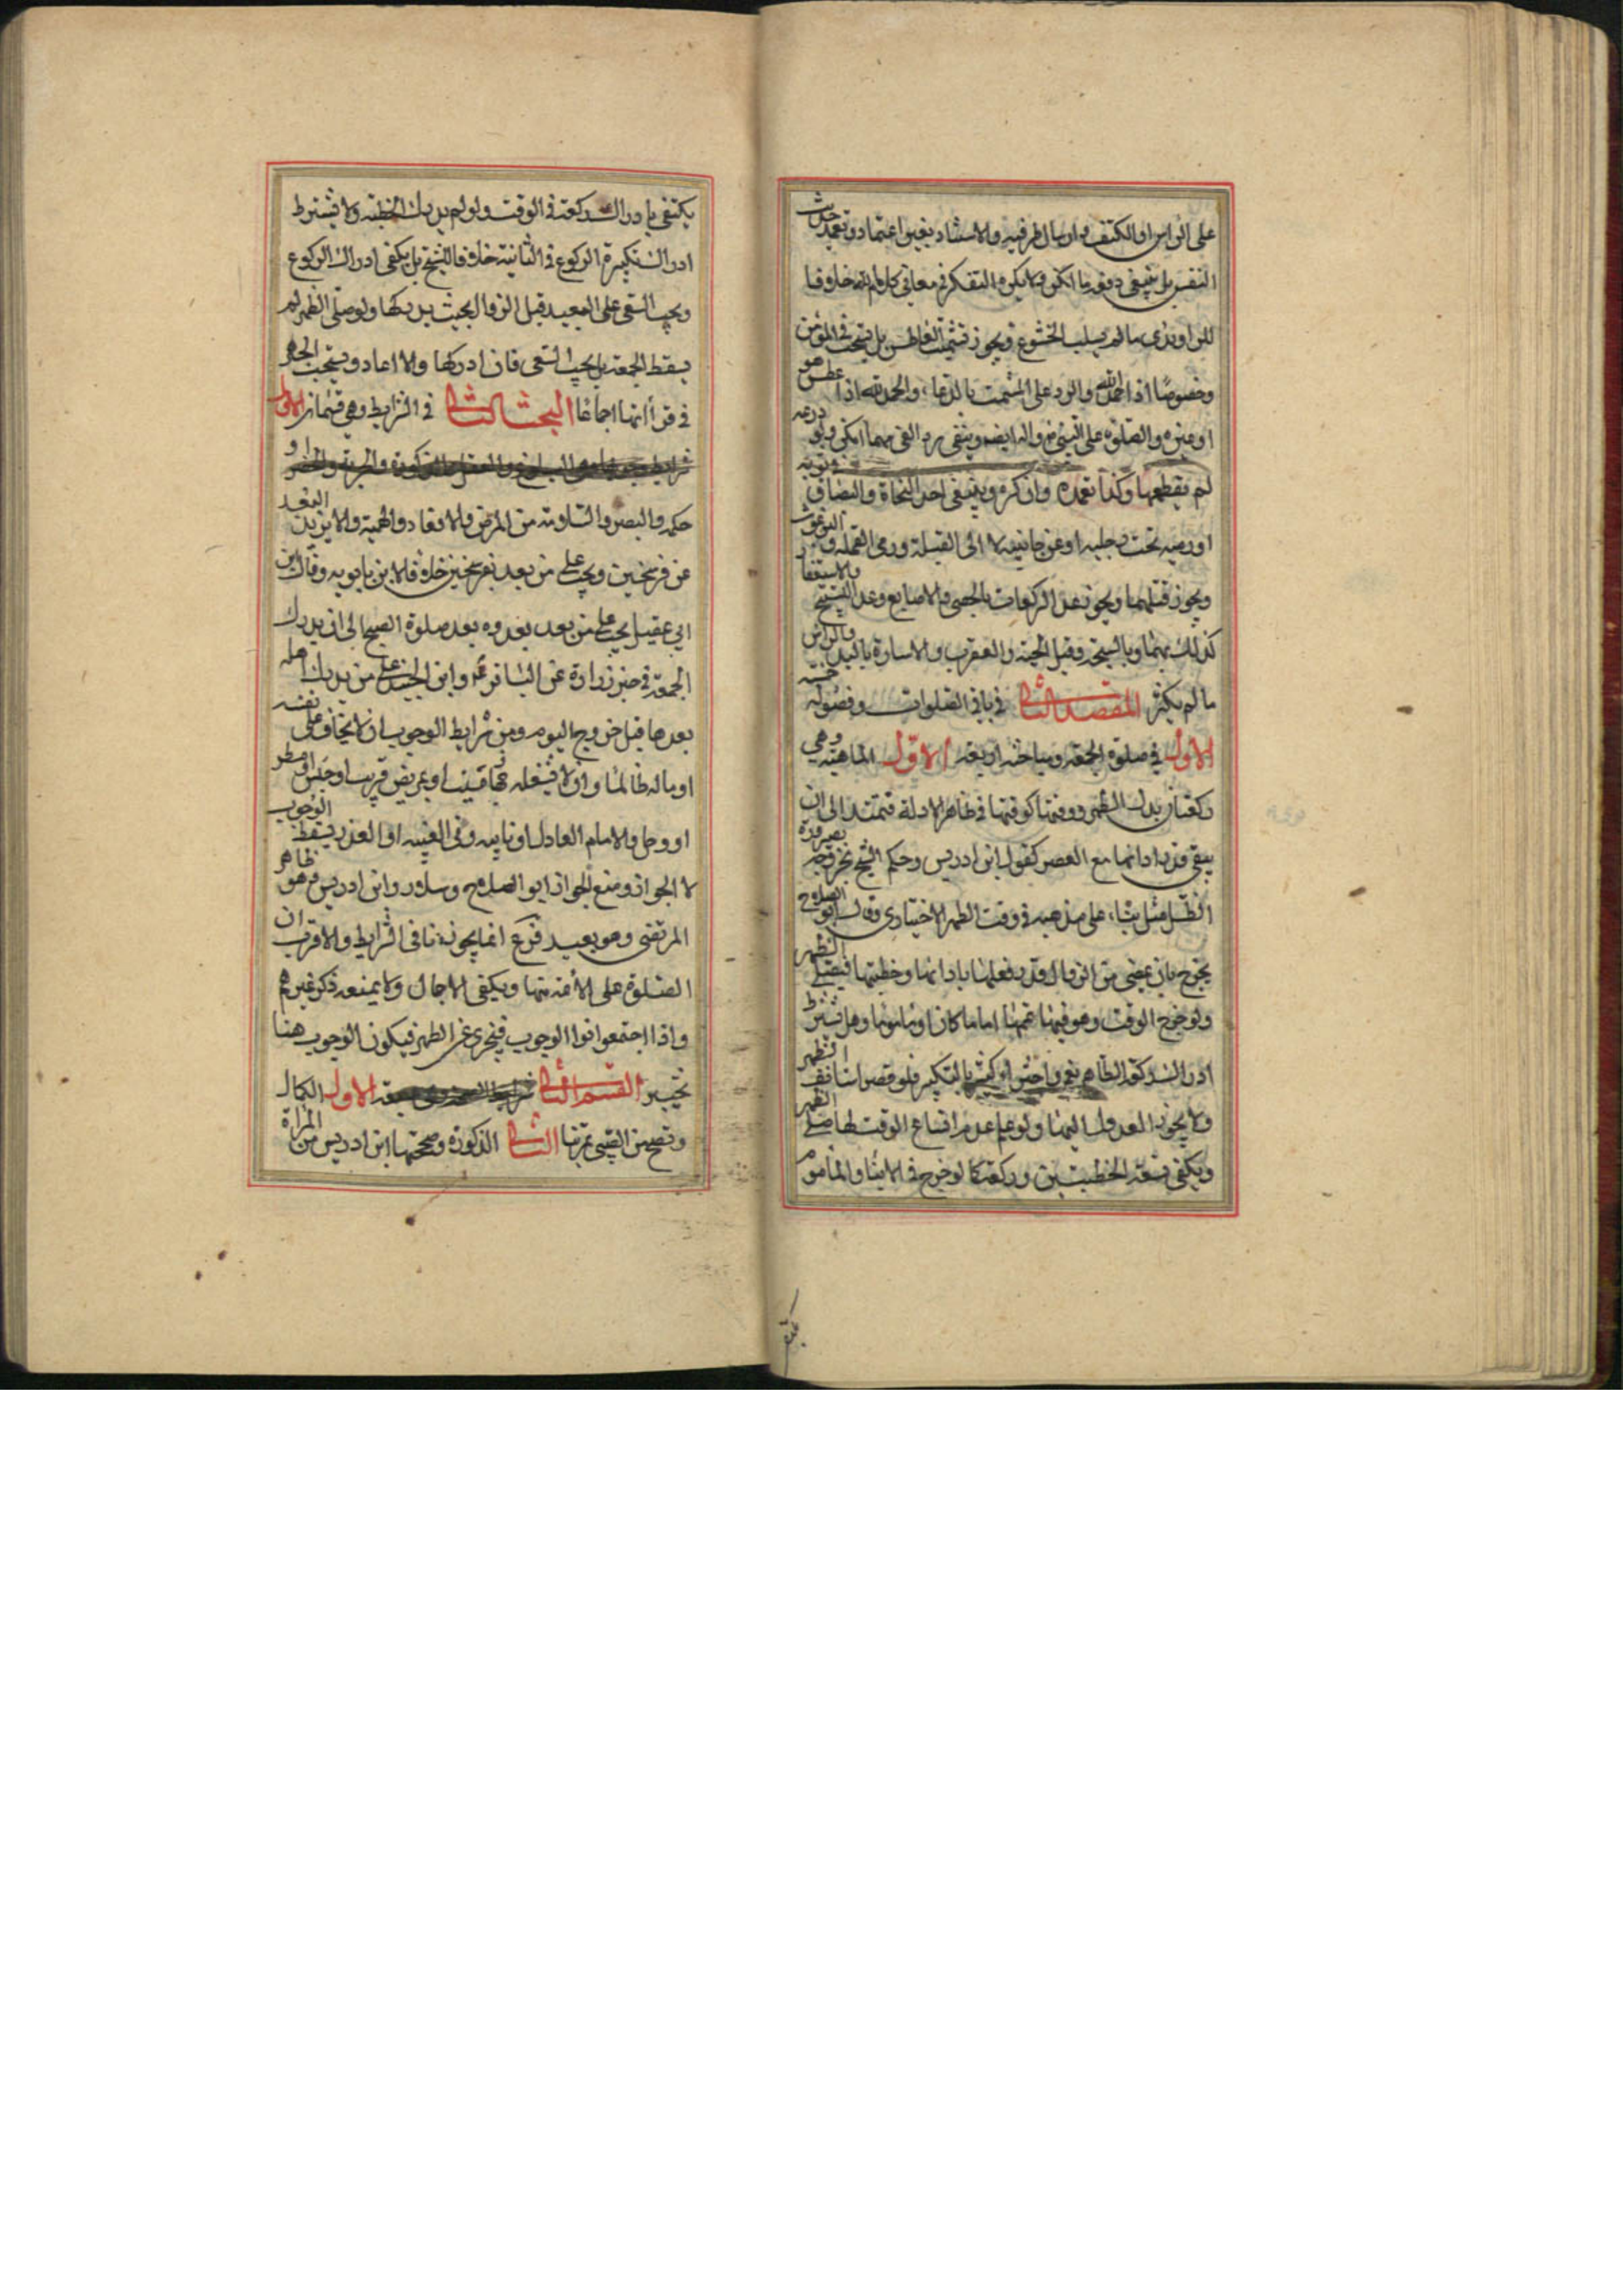 على الراس او الكتف وارسال طرفيه والاستناد بغير اعتماد وتعمد حديث
النفس بل ينبغي دفعه ما امكن ولا يكره التفكر في معاني كلام الله خلافا
للراوندي ما لم يسلب الخشوع ويجوز تشميت العاطس بل يستحب في المؤمن
وخصوصا اذا حمد الله والرد على المشمت بالدعاء والحمد لله اذا عطس هو
او غيره والصلوة على النبي واله ايضا وينبغي رد القي مهما امكن ولو ذرعه
لم يقطعها وكذا تعمده وان كره وينبغي اخذ النخامة والبصاق بثوبه
او رميه تحت رجليه او عن جانبيه لا الى القبلة ورمي القملة والبرغوث
ويجوز قتلهما ويجوز عد الركعات بالحصى والاصابع وعد التسبيح والاستغفار
كذلك بهما وبالسبحة وقتل الحية والعقرب والاشارة باليد والراس
ما لم يكثر المقصد الثاني في باقي الصلوات وفصوله خمسة
الاول في صلوة الجمعة ومباحثه اربعة الاول الماهية وهي
ركعتان بدل الظهر ووقتها كوقتها في ظاهر الادلة فتمتد الى ان
يبقى قدر ادائها مع العصر كقول ابن ادريس وحكم الشيخ بخروجه بصيرورة
الظل مثل الشيء على مذهبه في وقت الظهر الاختياري وقال ابو الصلاح
يخرج بان يمضي من الزوال قدر فعلها بادائها وخطبتها فيصلي الظهر
ولو خرج الوقت وهو فيها اتمها اماما كان او ماموما وهل يشترط
ادراك ركعة الظاهر نعم واجتزا كثير بالتكبير فلو قصر استانف الظهر
ولا يجوز العدول اليها ولو علم عدم اتساع الوقت لها صلى الظهر
ويكفي سعة الخطبتين وركعة كما لو خرج في الاثناء والماموم
يكتفي بادراك ركعة في الوقت ولو لم يدرك الخطبة ولا يشترط
ادراك تكبيرة الركوع في الثانية خلافا للشيخ بل يكفي ادراك الركوع
ويجب السعي على البعيد قبل الزوال بحيث يدركها ولو صلى الظهر لم
يسقط الجمعة بل يجب السعي فان ادركها والا اعاد ويستحب الجهر
في قراءتها اجماعا البحث الثاني في الشرايط وهي قسمان الاول
شرايط وجوبها وهي البلوغ والعقل والذكورة والحرية والحضر او
حكمه والبصر والسلامة من المرض والاقعاد والهمية والا يزيد البعد
عن فرسخين ويجب على من بعد بفرسخين خلافا لابن بابويه وقال ابن
ابي عقيل يجب على من بعد بعدوه بعد صلوة الصبح الى ان يدرك
الجمعة في خبر زرارة عن الباقر ع وابن الجنيد على من يدرك اهله
بعدها قبل خروج اليوم ومن شرايط الوجوب ان لا يخاف على نفسه
او ماله ظالما وان لا يشغله تجهيز ميت او مريض قريب او حبس او مطر
او وحل والامام العادل او نايبه وفي الغيبة او العذر يسقط الوجوب
لا الجواز ومنع الجواز ابو الصلاح وسلار وابن ادريس وهو ظاهر
المرتضى وهو بعيد فرع انما يجوز مع باقي الشرايط والاقرب ان
الصلوة على الائمة منها ويكفي الاجمال ولا يمنعه ذكر غيرهم
واذا اجتمعوا نووا الوجوب فيجزي عن الظهر فيكون الوجوب هنا
تخيير القسم الثاني شرايط الصحة وهي سبعة الاول الكمال
وتصح من الصبي تمرينا الثاني الذكورة وصححها ابن ادريس من المراة